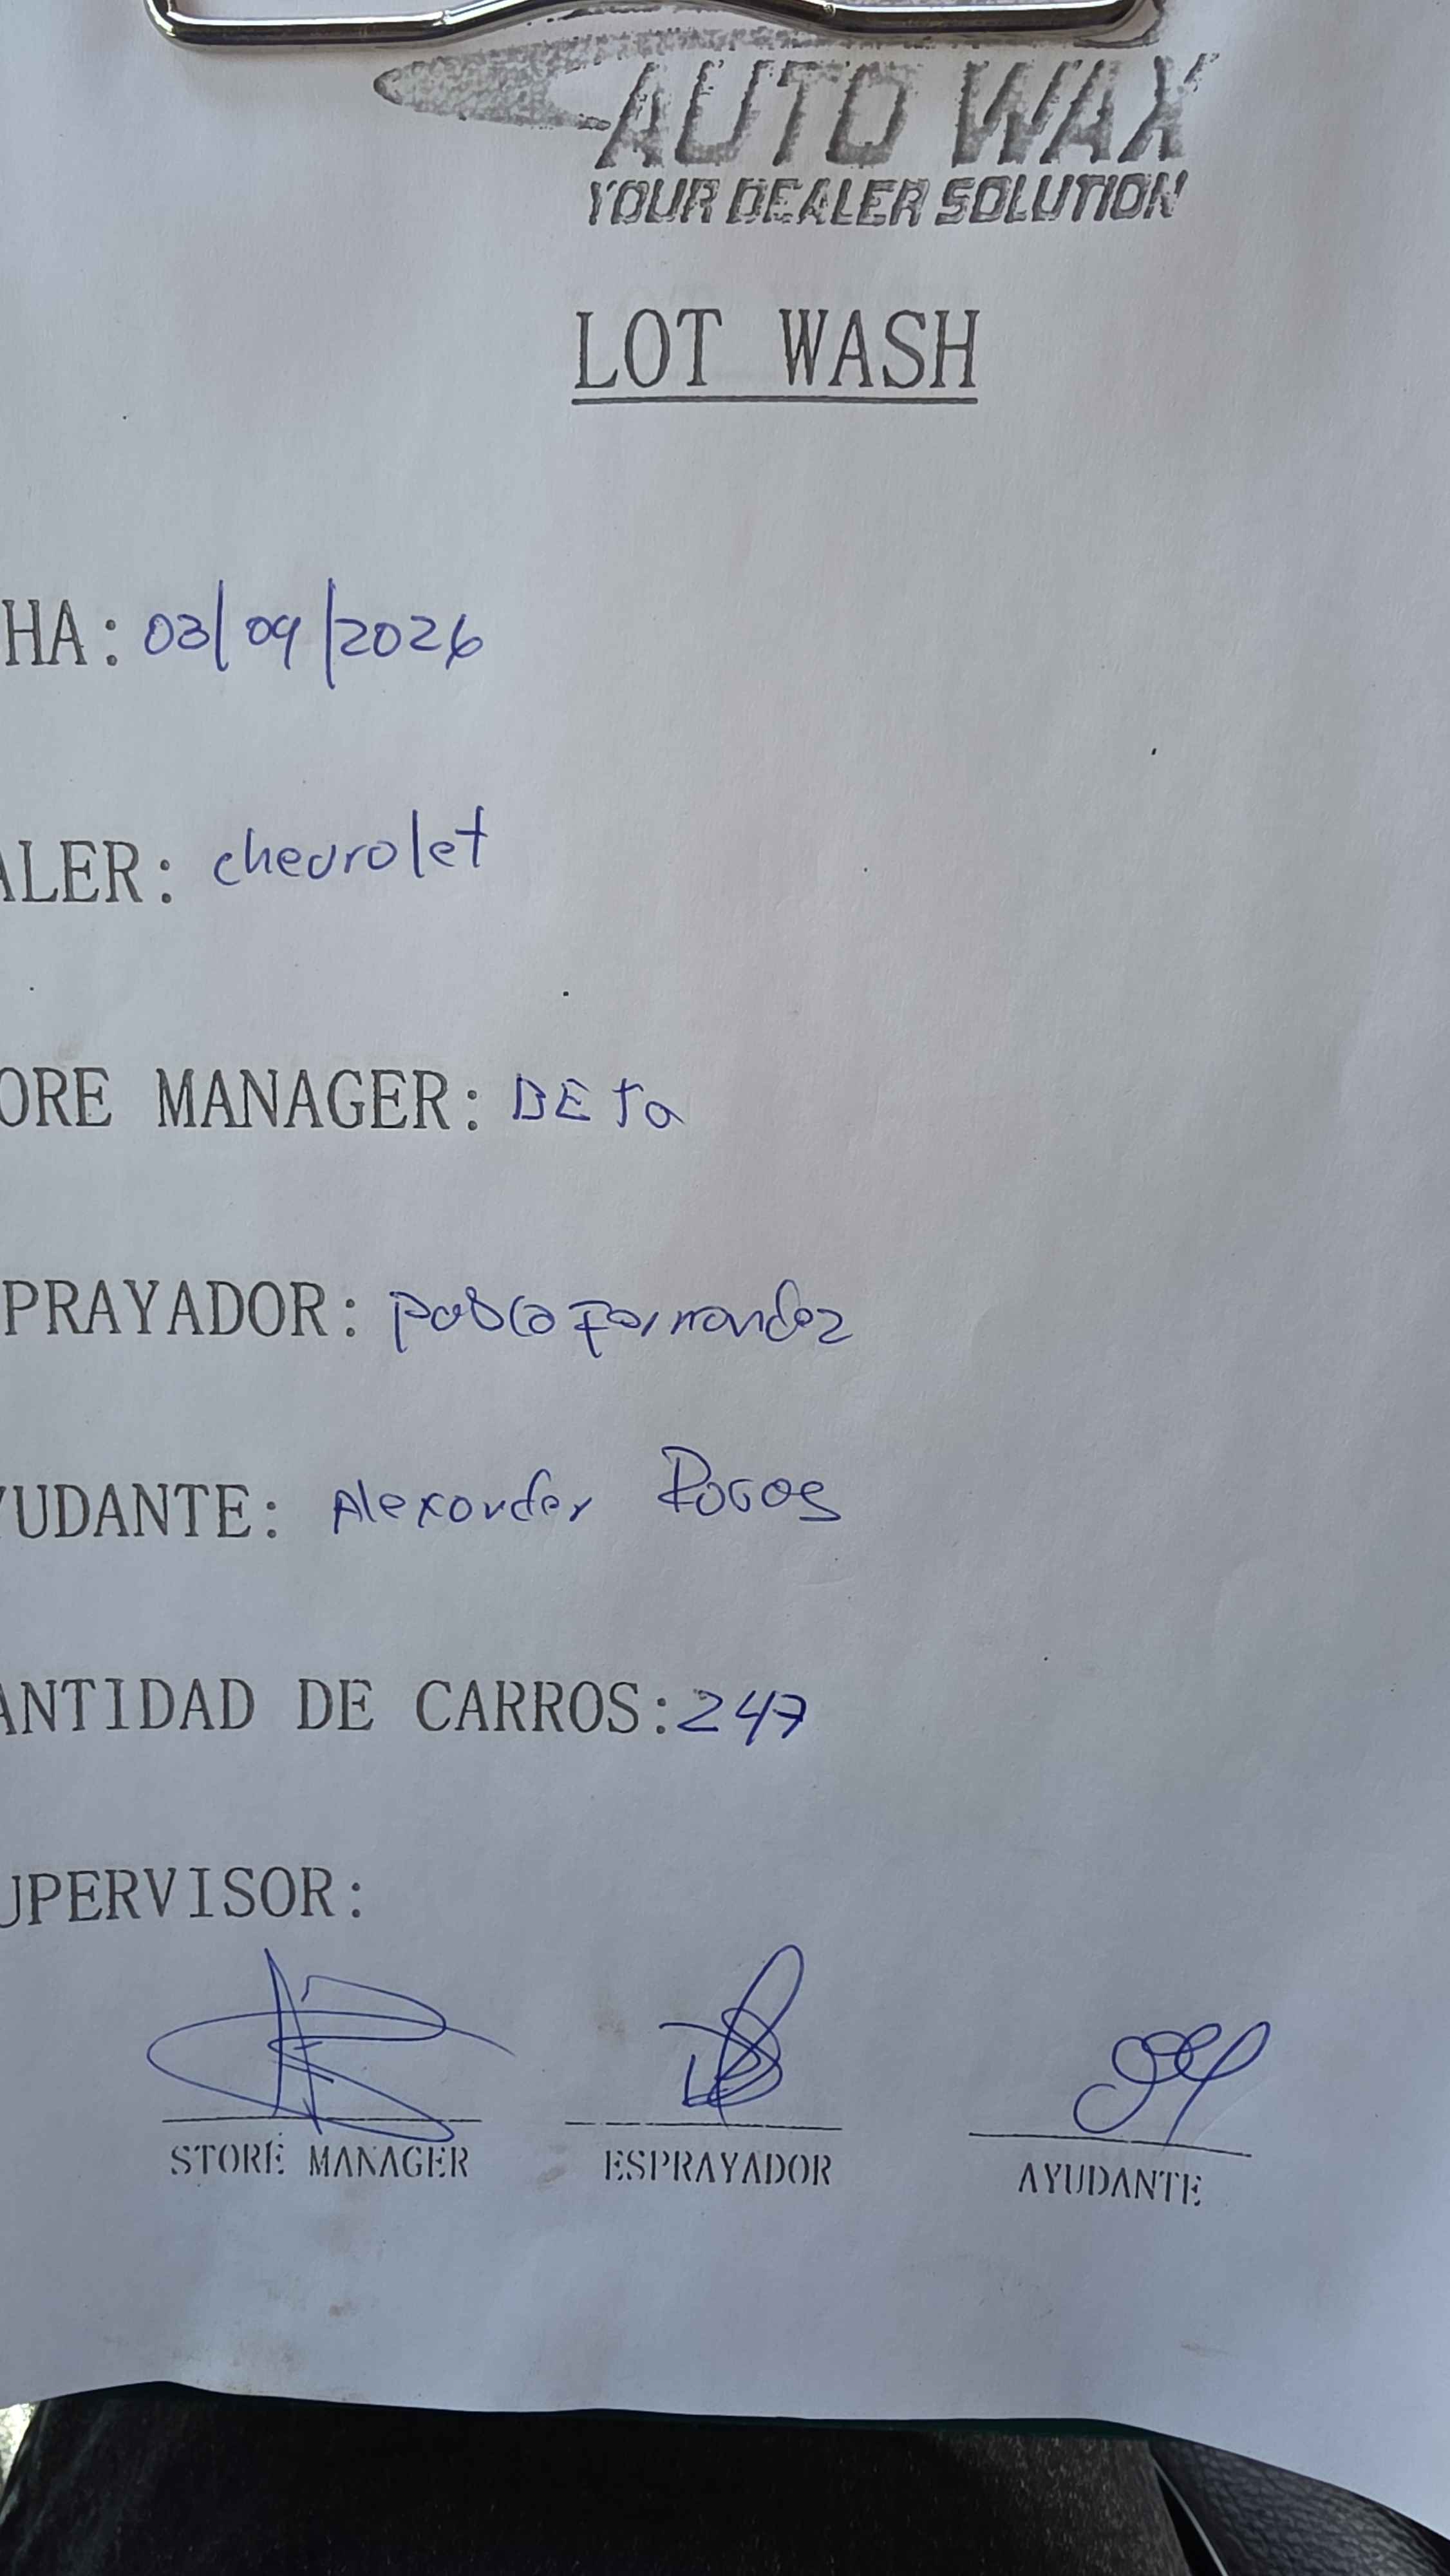 AUTO WAX
YOUR DEALER SOLUTION
LOT WASH
HA: 03/09/2026
ALER: chevrolet
ORE MANAGER: BETO
PRAYADOR: pablo
UDANTE: Alexander
ANTIDAD DE CARROS: 247
UPERVISOR:
STORE MANAGER ESPRAYADOR AYUDANTE